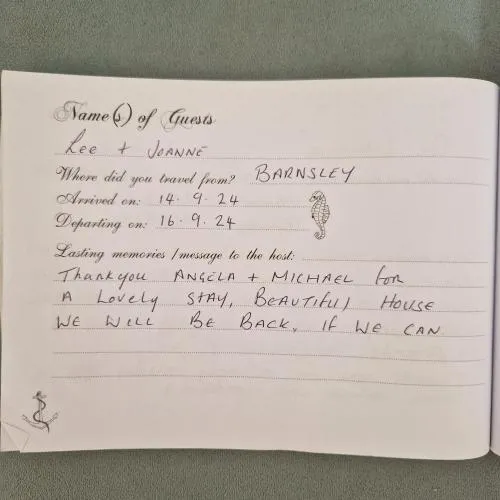 Name(s) of Guests
Lee + JOANNE
Where did you travel from? BARNSLEY
Arrived on: 14.9.24
Departing on: 16.9.24
Lasting memories / message to the host:
Thankyou ANGELA + MICHAEL for
A Lovely STAY, BEAUTIFUl HOUSE
WE WILL BE BACK, If WE CAN